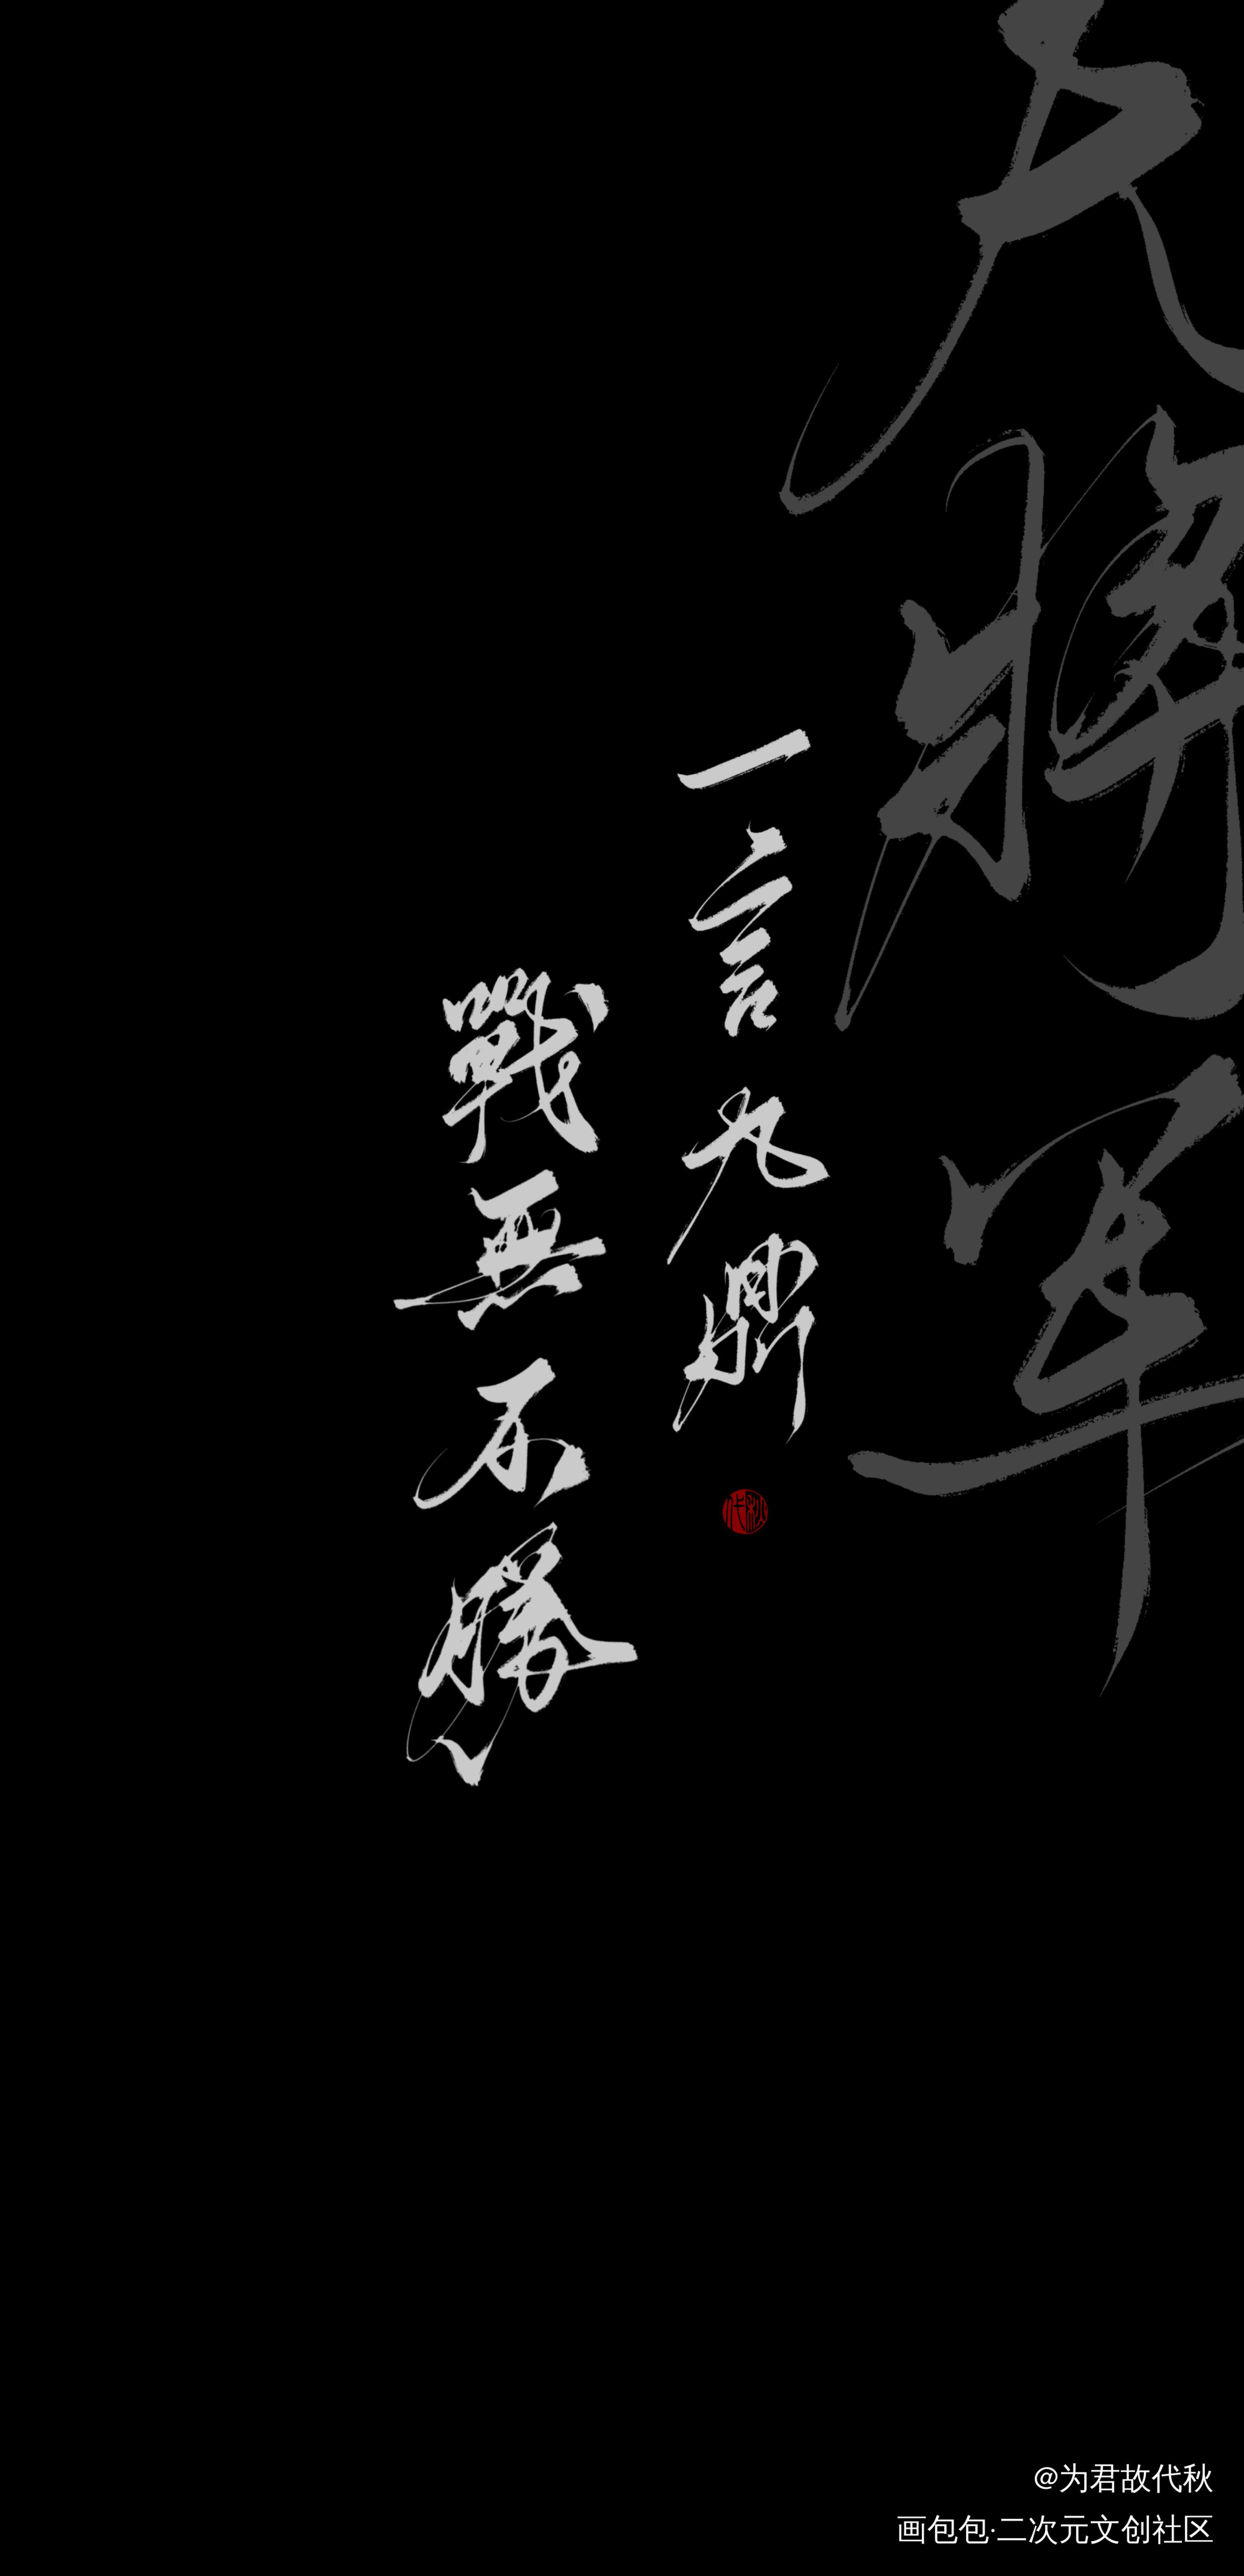 大將軍
一言九鼎
戰無不勝
代秋
@为君故代秋
画包包·二次元文创社区